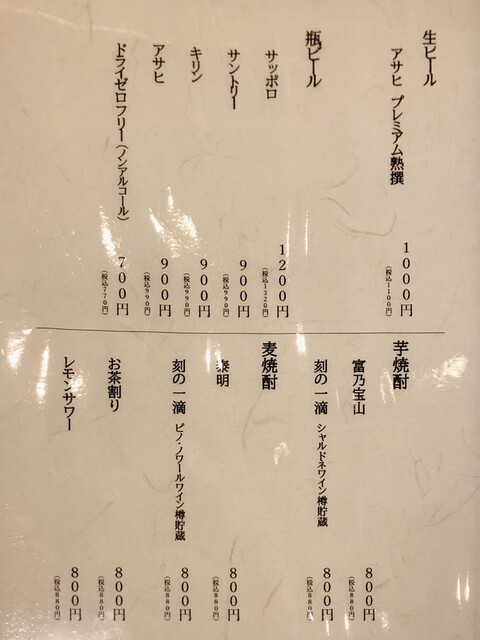 生ビール
アサヒ プレミアム熟撰
1000円
(税込1100円)
瓶ビール
サッポロ
1200円
(税込1320円)
サントリー
900円
(税込990円)
キリン
900円
(税込990円)
アサヒ
900円
(税込990円)
ドライゼロフリー(ノンアルコール)
700円
(税込770円)
芋焼酎
富乃宝山
800円
(税込880円)
刻の一滴 シャルドネワイン樽貯蔵
800円
(税込880円)
麦焼酎
泰明
800円
(税込880円)
刻の一滴 ピノ・ノワールワイン樽貯蔵
800円
(税込880円)
お茶割り
800円
(税込880円)
レモンサワー
800円
(税込880円)